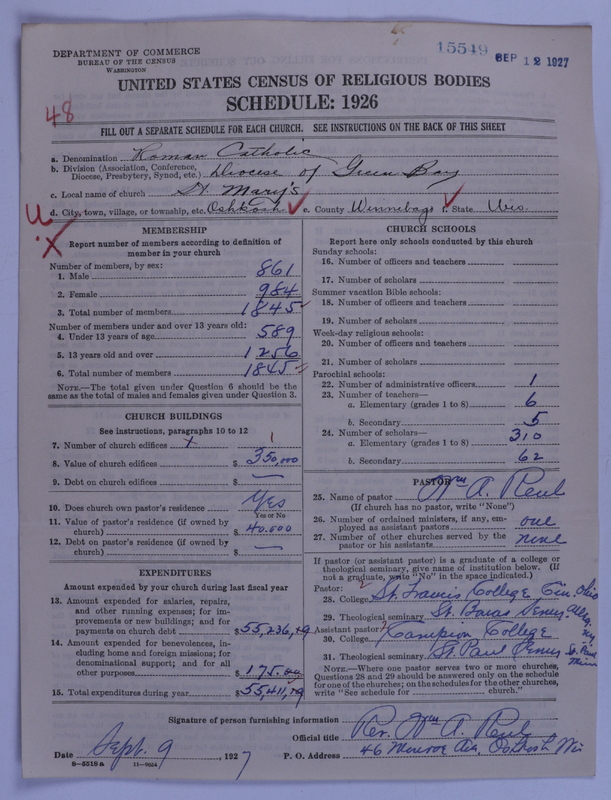 DEPARTMENT OF COMMERCE
BUREAU OF THE CENSUS
WASHINGTON
15549 SEP 12 1927
UNITED STATES CENSUS OF RELIGIOUS BODIES
SCHEDULE: 1926
48
FILL OUT A SEPARATE SCHEDULE FOR EACH CHURCH. SEE INSTRUCTIONS ON THE BACK OF THIS SHEET
a. Denomination Roman Catholic
b. Division (Association, Conference, Diocese, Presbytery, Synod, etc.) Diocese of Green Bay
c. Local name of church St. Mary's
d. City, town, village, or township, etc. Oshkosh e. County Winnebago f. State Wis.
MEMBERSHIP
Report number of members according to definition of
member in your church
Number of members, by sex:
1. Male 861
2. Female 984
3. Total number of members 1845
Number of members under and over 13 years old:
4. Under 13 years of age 589
5. 13 years old and over 1256
6. Total number of members 1845
NOTE.—The total given under Question 6 should be the
same as the total of males and females given under Question 3.
CHURCH BUILDINGS
See instructions, paragraphs 10 to 12
7. Number of church edifices 1
8. Value of church edifices $350,000
9. Debt on church edifices $ —
10. Does church own pastor's residence Yes
Yes or No
11. Value of pastor's residence (if owned by
church) $40.000
12. Debt on pastor's residence (if owned by
church) $ —
EXPENDITURES
Amount expended by your church during last fiscal year
13. Amount expended for salaries, repairs,
and other running expenses; for im-
provements or new buildings; and for
payments on church debt $55,236,
14. Amount expended for benevolences, in-
cluding home and foreign missions; for
denominational support; and for all
other purposes $175.00
15. Total expenditures during year $55,411,
CHURCH SCHOOLS
Report here only schools conducted by this church
Sunday schools:
16. Number of officers and teachers
17. Number of scholars
Summer vacation Bible schools:
18. Number of officers and teachers
19. Number of scholars
Week-day religious schools:
20. Number of officers and teachers
21. Number of scholars
Parochial schools:
22. Number of administrative officers 1
23. Number of teachers—
a. Elementary (grades 1 to 8) 6
b. Secondary 5
24. Number of scholars—
a. Elementary (grades 1 to 8) 310
b. Secondary 62
PASTOR
25. Name of pastor Wm A. Reul
(If church has no pastor, write "None")
26. Number of ordained ministers, if any, em-
ployed as assistant pastors one
27. Number of other churches served by the
pastor or his assistants none
If pastor (or assistant pastor) is a graduate of a college or
theological seminary, give name of institution below. (If
not a graduate, write "No" in the space indicated.)
Pastor:
28. College St. Francis College Cin. Ohio
29. Theological seminary
Assistant pastor:
30. College Campion College
31. Theological seminary St. Paul St. Paul Minn
NOTE.—Where one pastor serves two or more churches,
Questions 28 and 29 should be answered only on the schedule
for one of the churches; on the schedules for the other churches,
write "See schedule for church."
Signature of person furnishing information Rev. Wm A. Reul
Official title
Date Sept. 9, 1927 P. O. Address 46 Monroe Ave, Oshkosh Wis
8—5518a 11—9654